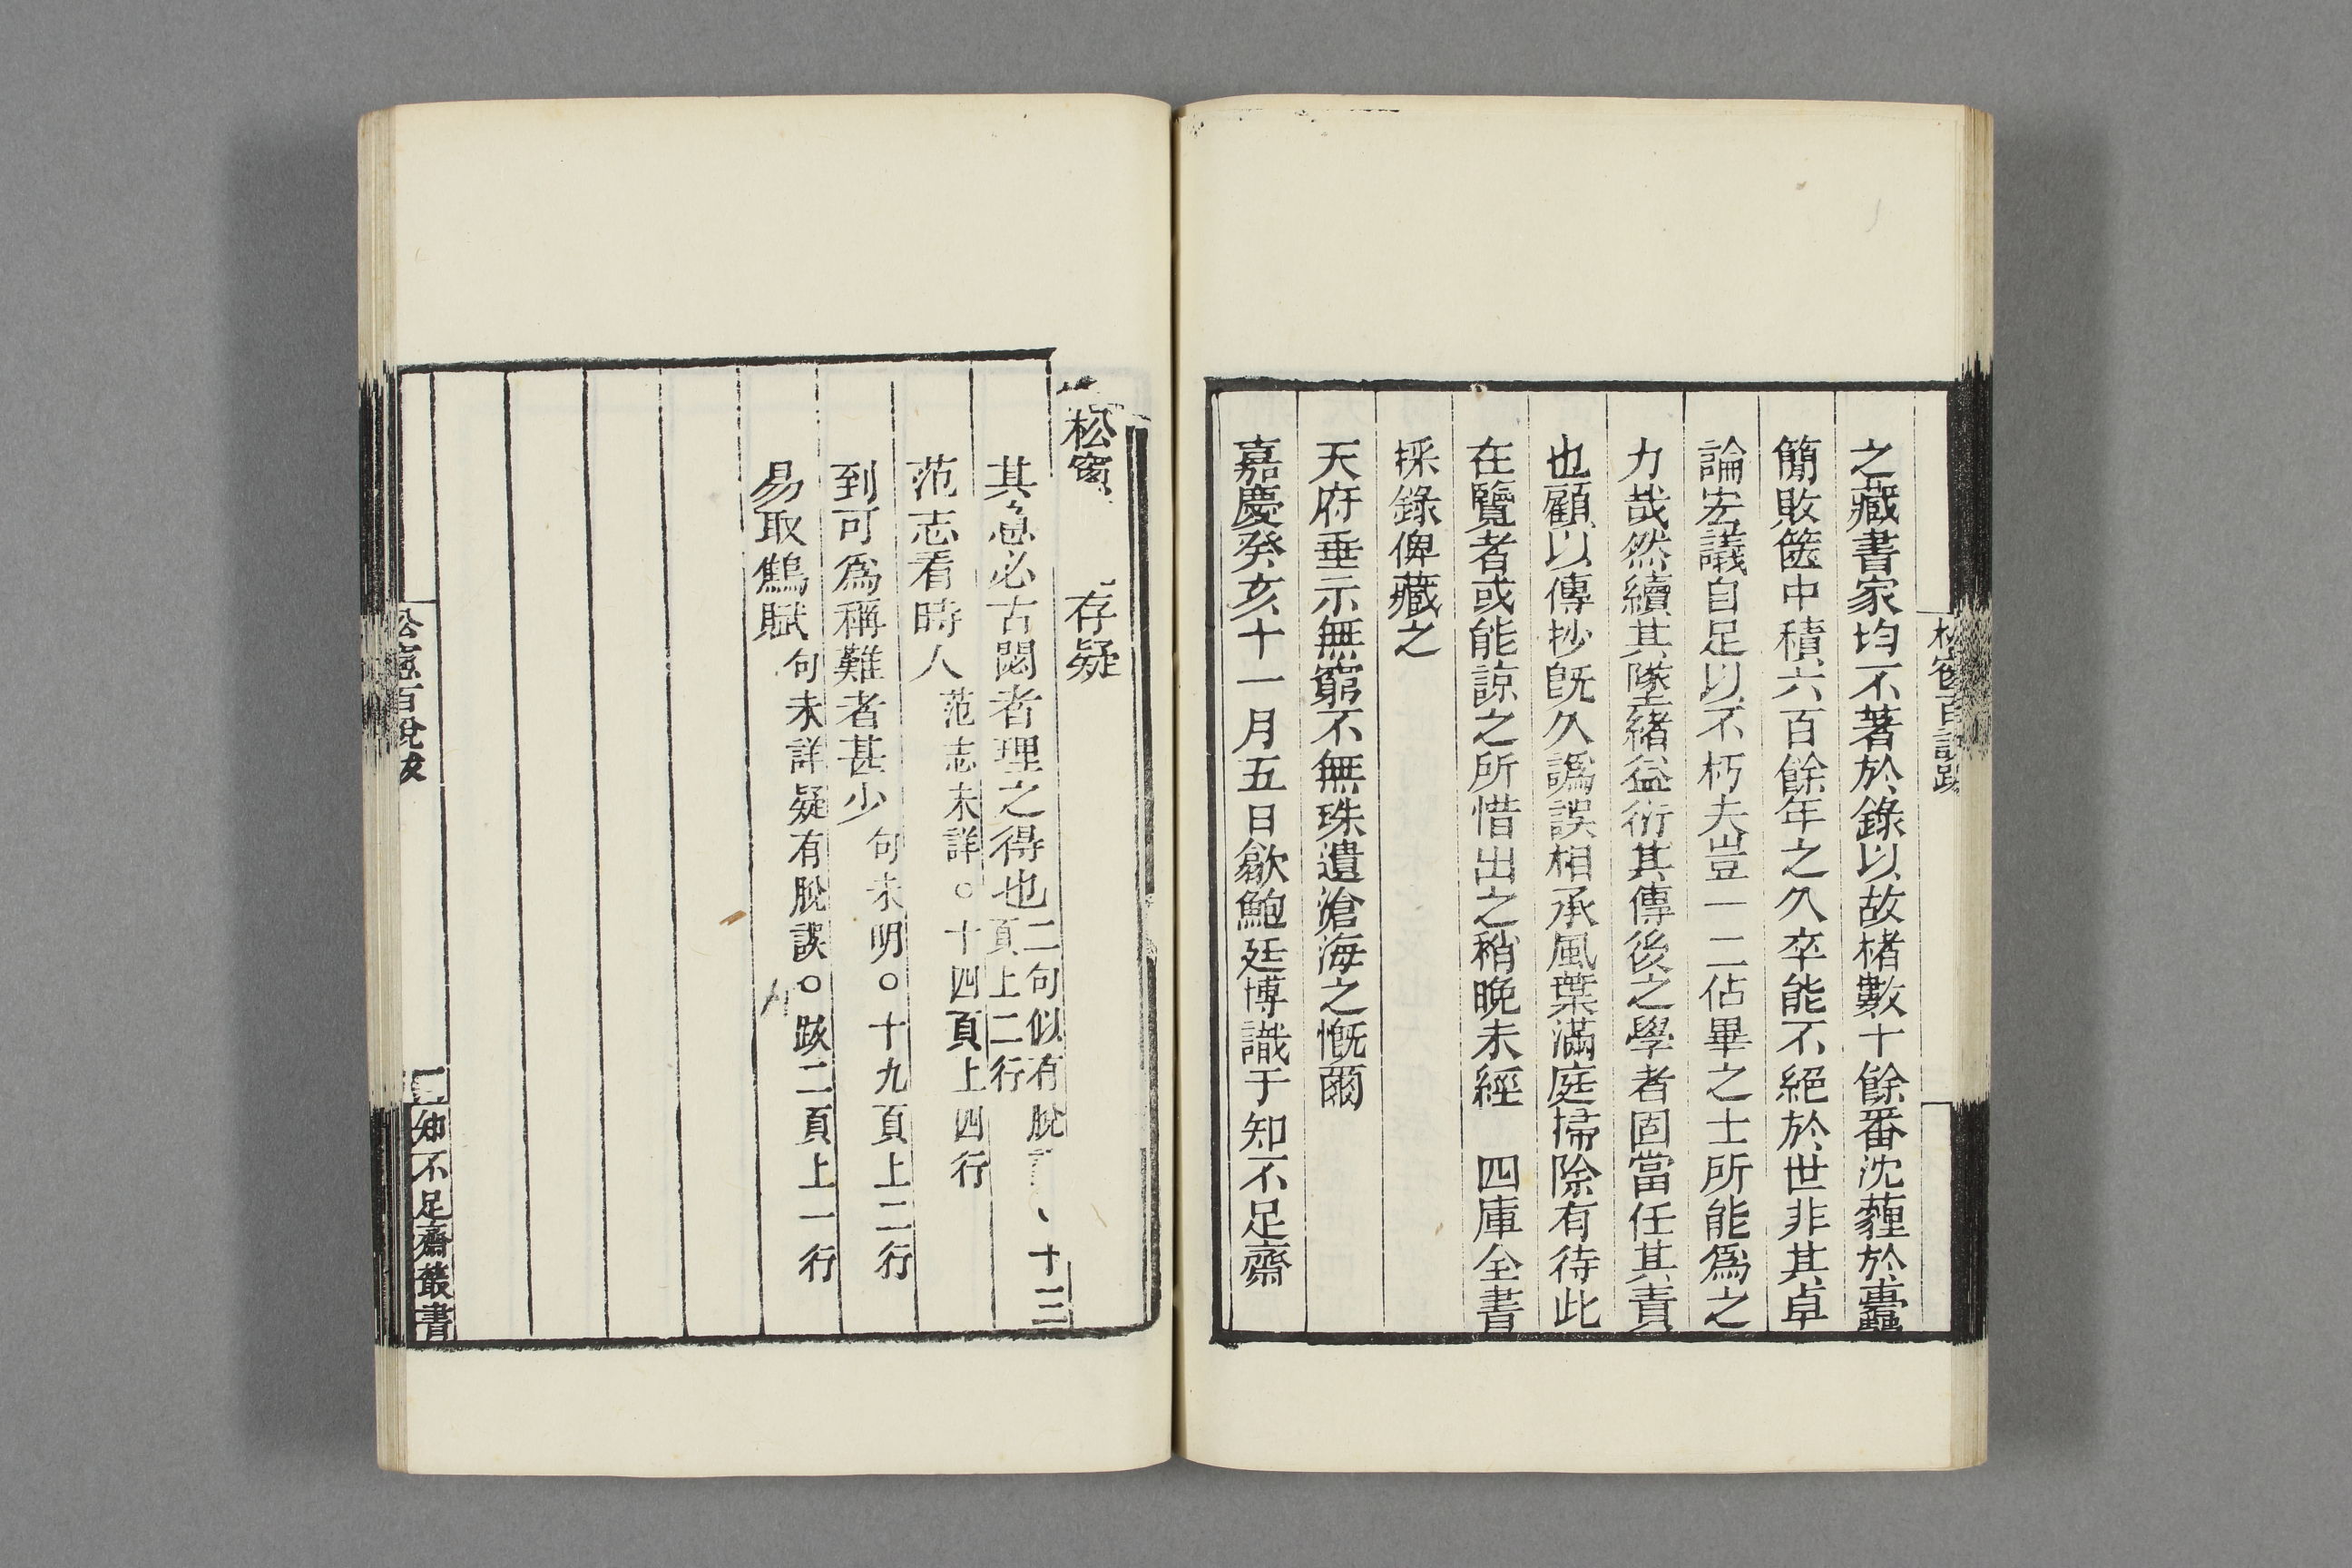 松窗百說跋
之藏書家均不著於錄以故楮數十餘番沈薶於蠹
簡敗篋中積六百餘年之久卒能不絕於世非其卓
論宏議自足以不朽夫豈一二佔畢之士所能爲之
力哉然續其墜緒益衍其傳後之學者固當任其責
也顧以傳抄旣久譌誤相承風葉滿庭掃除有待此
在覽者或能諒之所惜出之稍晚未經　四庫全書
採錄俾藏之
天府垂示無窮不無珠遺滄海之慨爾
嘉慶癸亥十一月五日歙鮑廷博識于知不足齋
松窗　存疑
其急必古閎者理之得也二句似有脫　十三
頁上二行
范志看時人范志未詳○十四頁上四行
到可爲稱難者甚少句未明○十九頁上二行
易取鷦賦句未詳疑有脫誤○跋二頁上一行
松窗百說跋
知不足齋叢書